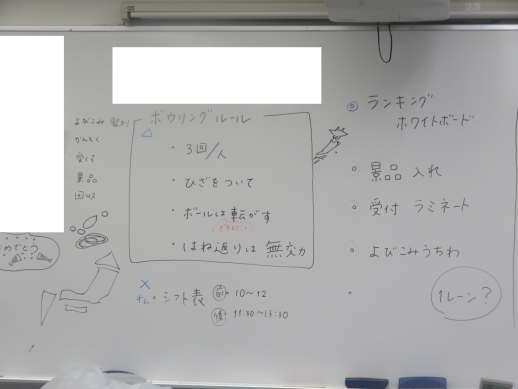 よびこみ
かんむく
受付
景品
回収
めでとう
ボウリングルール
・3回/人
・ひざをついて
・ボールは転がす
・はね返りは無効
・シフト表
前 10〜12
後 11:30〜13:30
ランキング
ホワイトボード
景品入れ
受付 ラミネート
よびこみうちわ
1レーン?